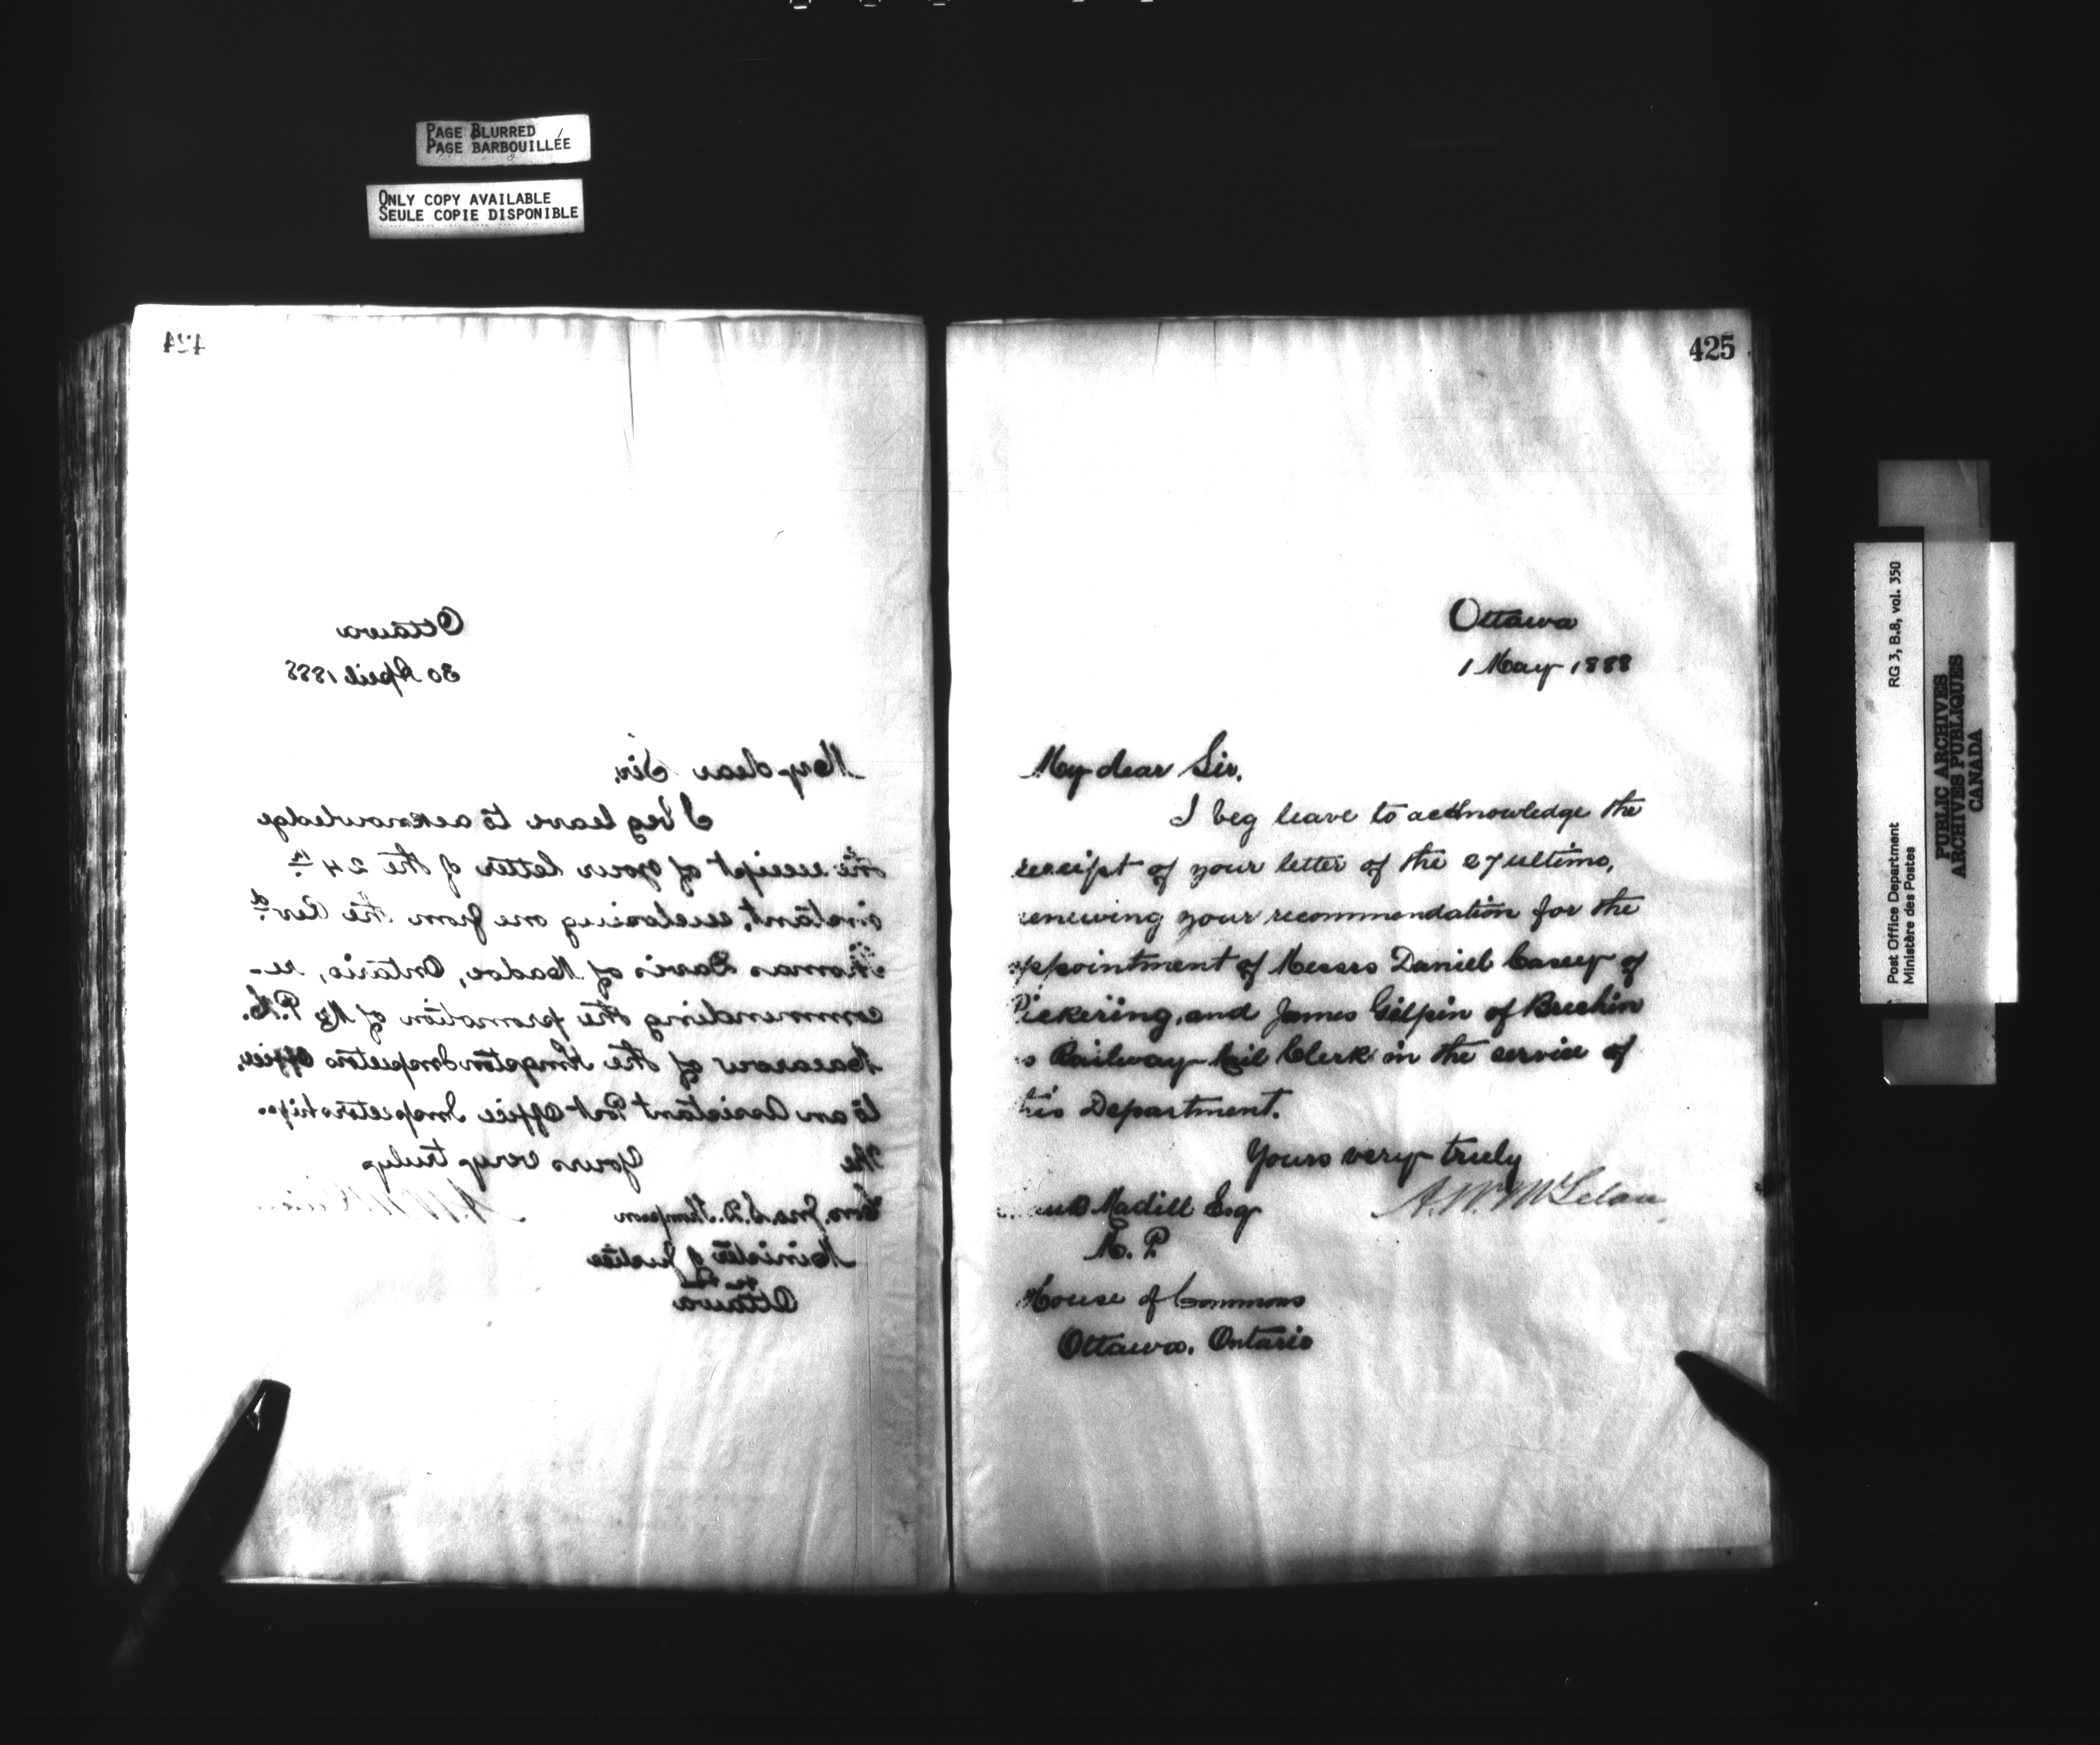 PAGE BLURRED
PAGE BARBOUILLÉE
ONLY COPY AVAILABLE
SEULE COPIE DISPONIBLE
424
Ottawa
30 April 1888
My dear Sir,
I beg leave to acknowledge
the receipt of your letter of the 24th
instant, enclosing one from the Revd
Thomas Davis of Madoc, Ontario, re-
commending the promotion of Mr
of the Kingston Inspectors Office,
to an Assistant Post Office Inspectorship.
The Yours very truly
Hon. Jno. S. D. Thompson
Minister of Justice
Ottawa
425
Ottawa
1 May 1888
My dear Sir,
I beg leave to acknowledge the
receipt of your letter of the 27 ultimo,
enewing your recommendation for the
appointment of Messrs Daniel Casey of
Pickering, and James Gilpin of Brechin
s Railway Mail Clerk in the service of
this Department.
Yours very truly
A. W. McLelan
Madill Esq
M. P.
House of Commons
Ottawa. Ontario
Post Office Department RG 3, B.8, vol. 350
Ministère des Postes
PUBLIC ARCHIVES
ARCHIVES PUBLIQUES
CANADA